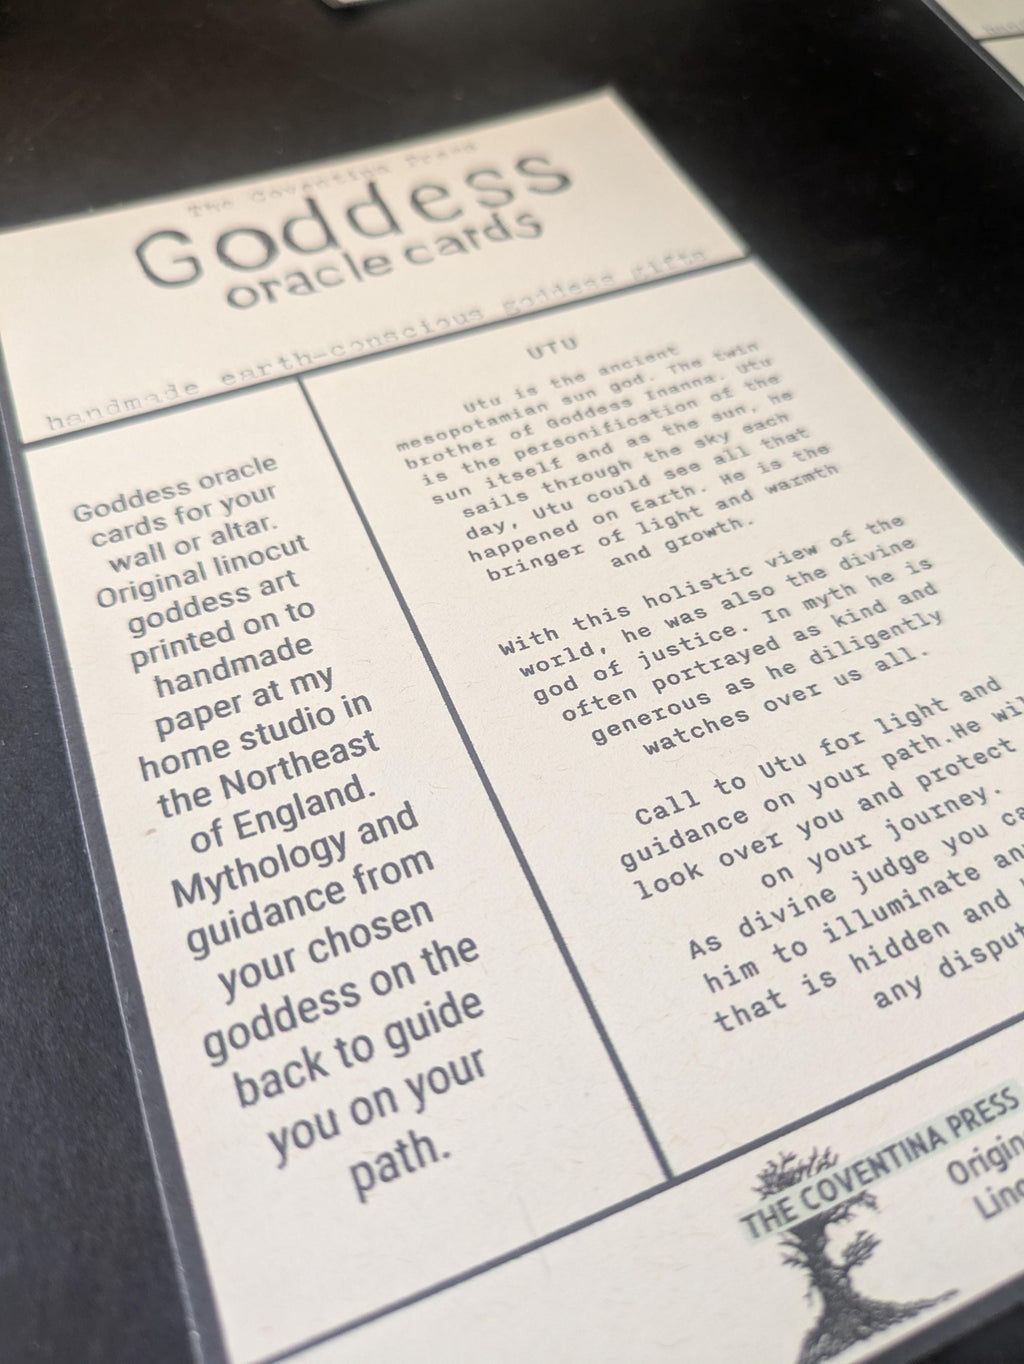 The Coventina Press
Goddess
oracle cards
handmade earth-conscious goddess gifts
Goddess oracle
cards for your
wall or altar.
Original linocut
goddess art
printed on to
handmade
paper at my
home studio in
the Northeast
of England.
Mythology and
guidance from
your chosen
goddess on the
back to guide
you on your
path.
UTU
Utu is the ancient
mesopotamian sun god. The twin
brother of Goddess Inanna. Utu
is the personification of the
sun itself and as the sun, he
sails through the sky each
day, Utu could see all that
happened on Earth. He is the
bringer of light and warmth
and growth.
With this holistic view of the
world, he was also the divine
god of justice. In myth he is
often portrayed as kind and
generous as he diligently
watches over us all.
Call to Utu for light and
guidance on your path.He
look over you and protect
on your journey.
As divine judge you
him to illuminate
that is hidden and
any
THE COVENTINA PRESS